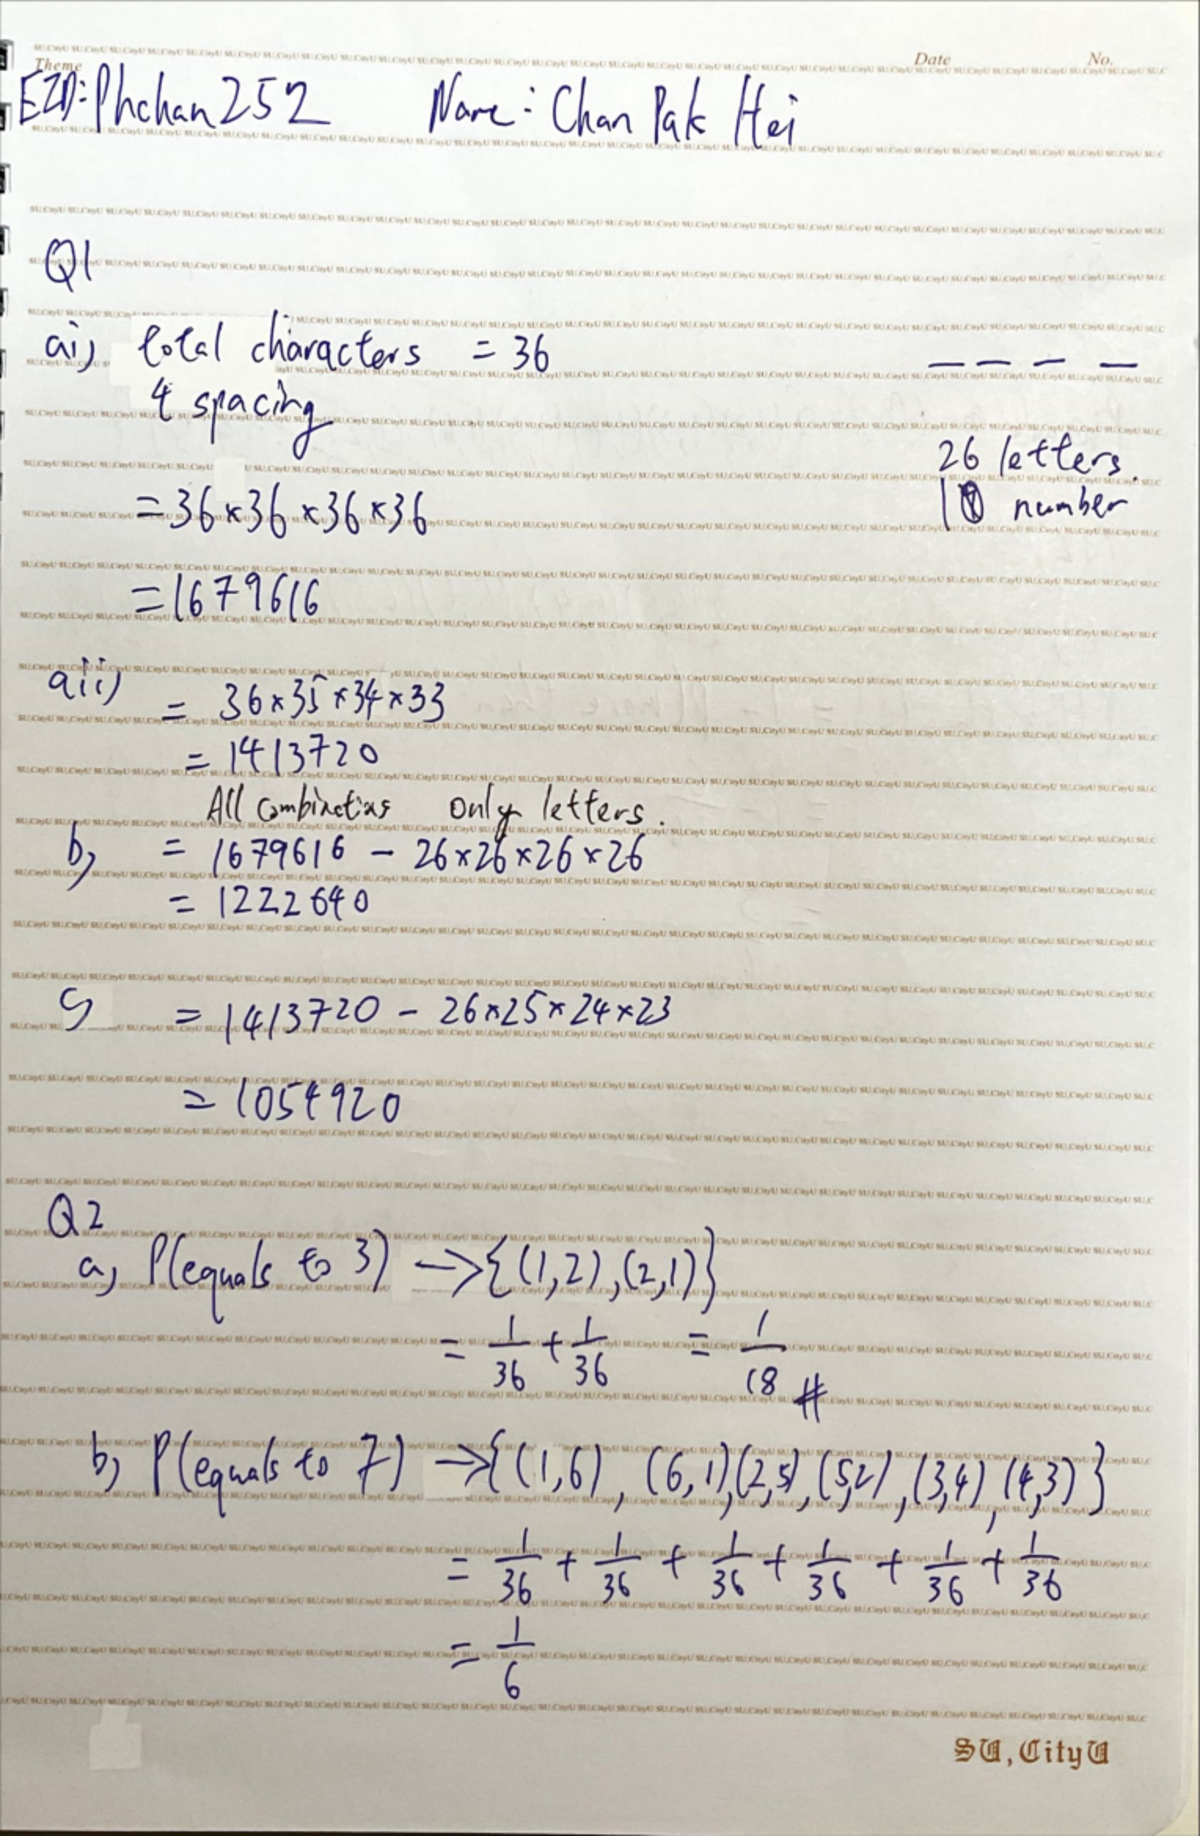 Theme Date No.
EID: Phchan252 Name: Chan Pak Hei
Q1
ai) total characters = 36
4 spacing
26 letters.
10 number
= 36 × 36 × 36 × 36
= 1679616
aii) = 36 × 35 × 34 × 33
= 1413720
All combinations only letters.
b) = 1679616 - 26 × 26 × 26 × 26
= 1222640
c) = 1413720 - 26 × 25 × 24 × 23
= 1054920
Q2
a) P(equals to 3) → {(1,2), (2,1)}
= 1/36 + 1/36 = 1/18 #
b) P(equals to 7) → {(1,6), (6,1), (2,5), (5,2), (3,4), (4,3)}
= 1/36 + 1/36 + 1/36 + 1/36 + 1/36 + 1/36
= 1/6
SU, CityU